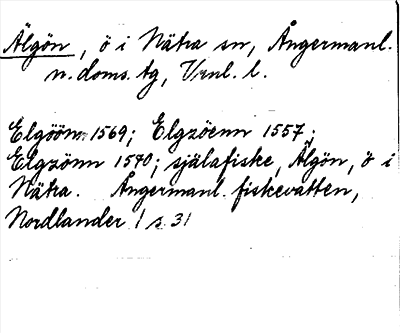 Älgön, ö i Nätra sn, Ångermanl.
n. doms. tg, Vrnl. l.
Elgöön 1569; Elgzöenn 1557;
Elgzönn 1540; själafiske, Älgön, ö i
Nätra. Ångermanl. fiskevatten,
Nordlander 1 s. 31